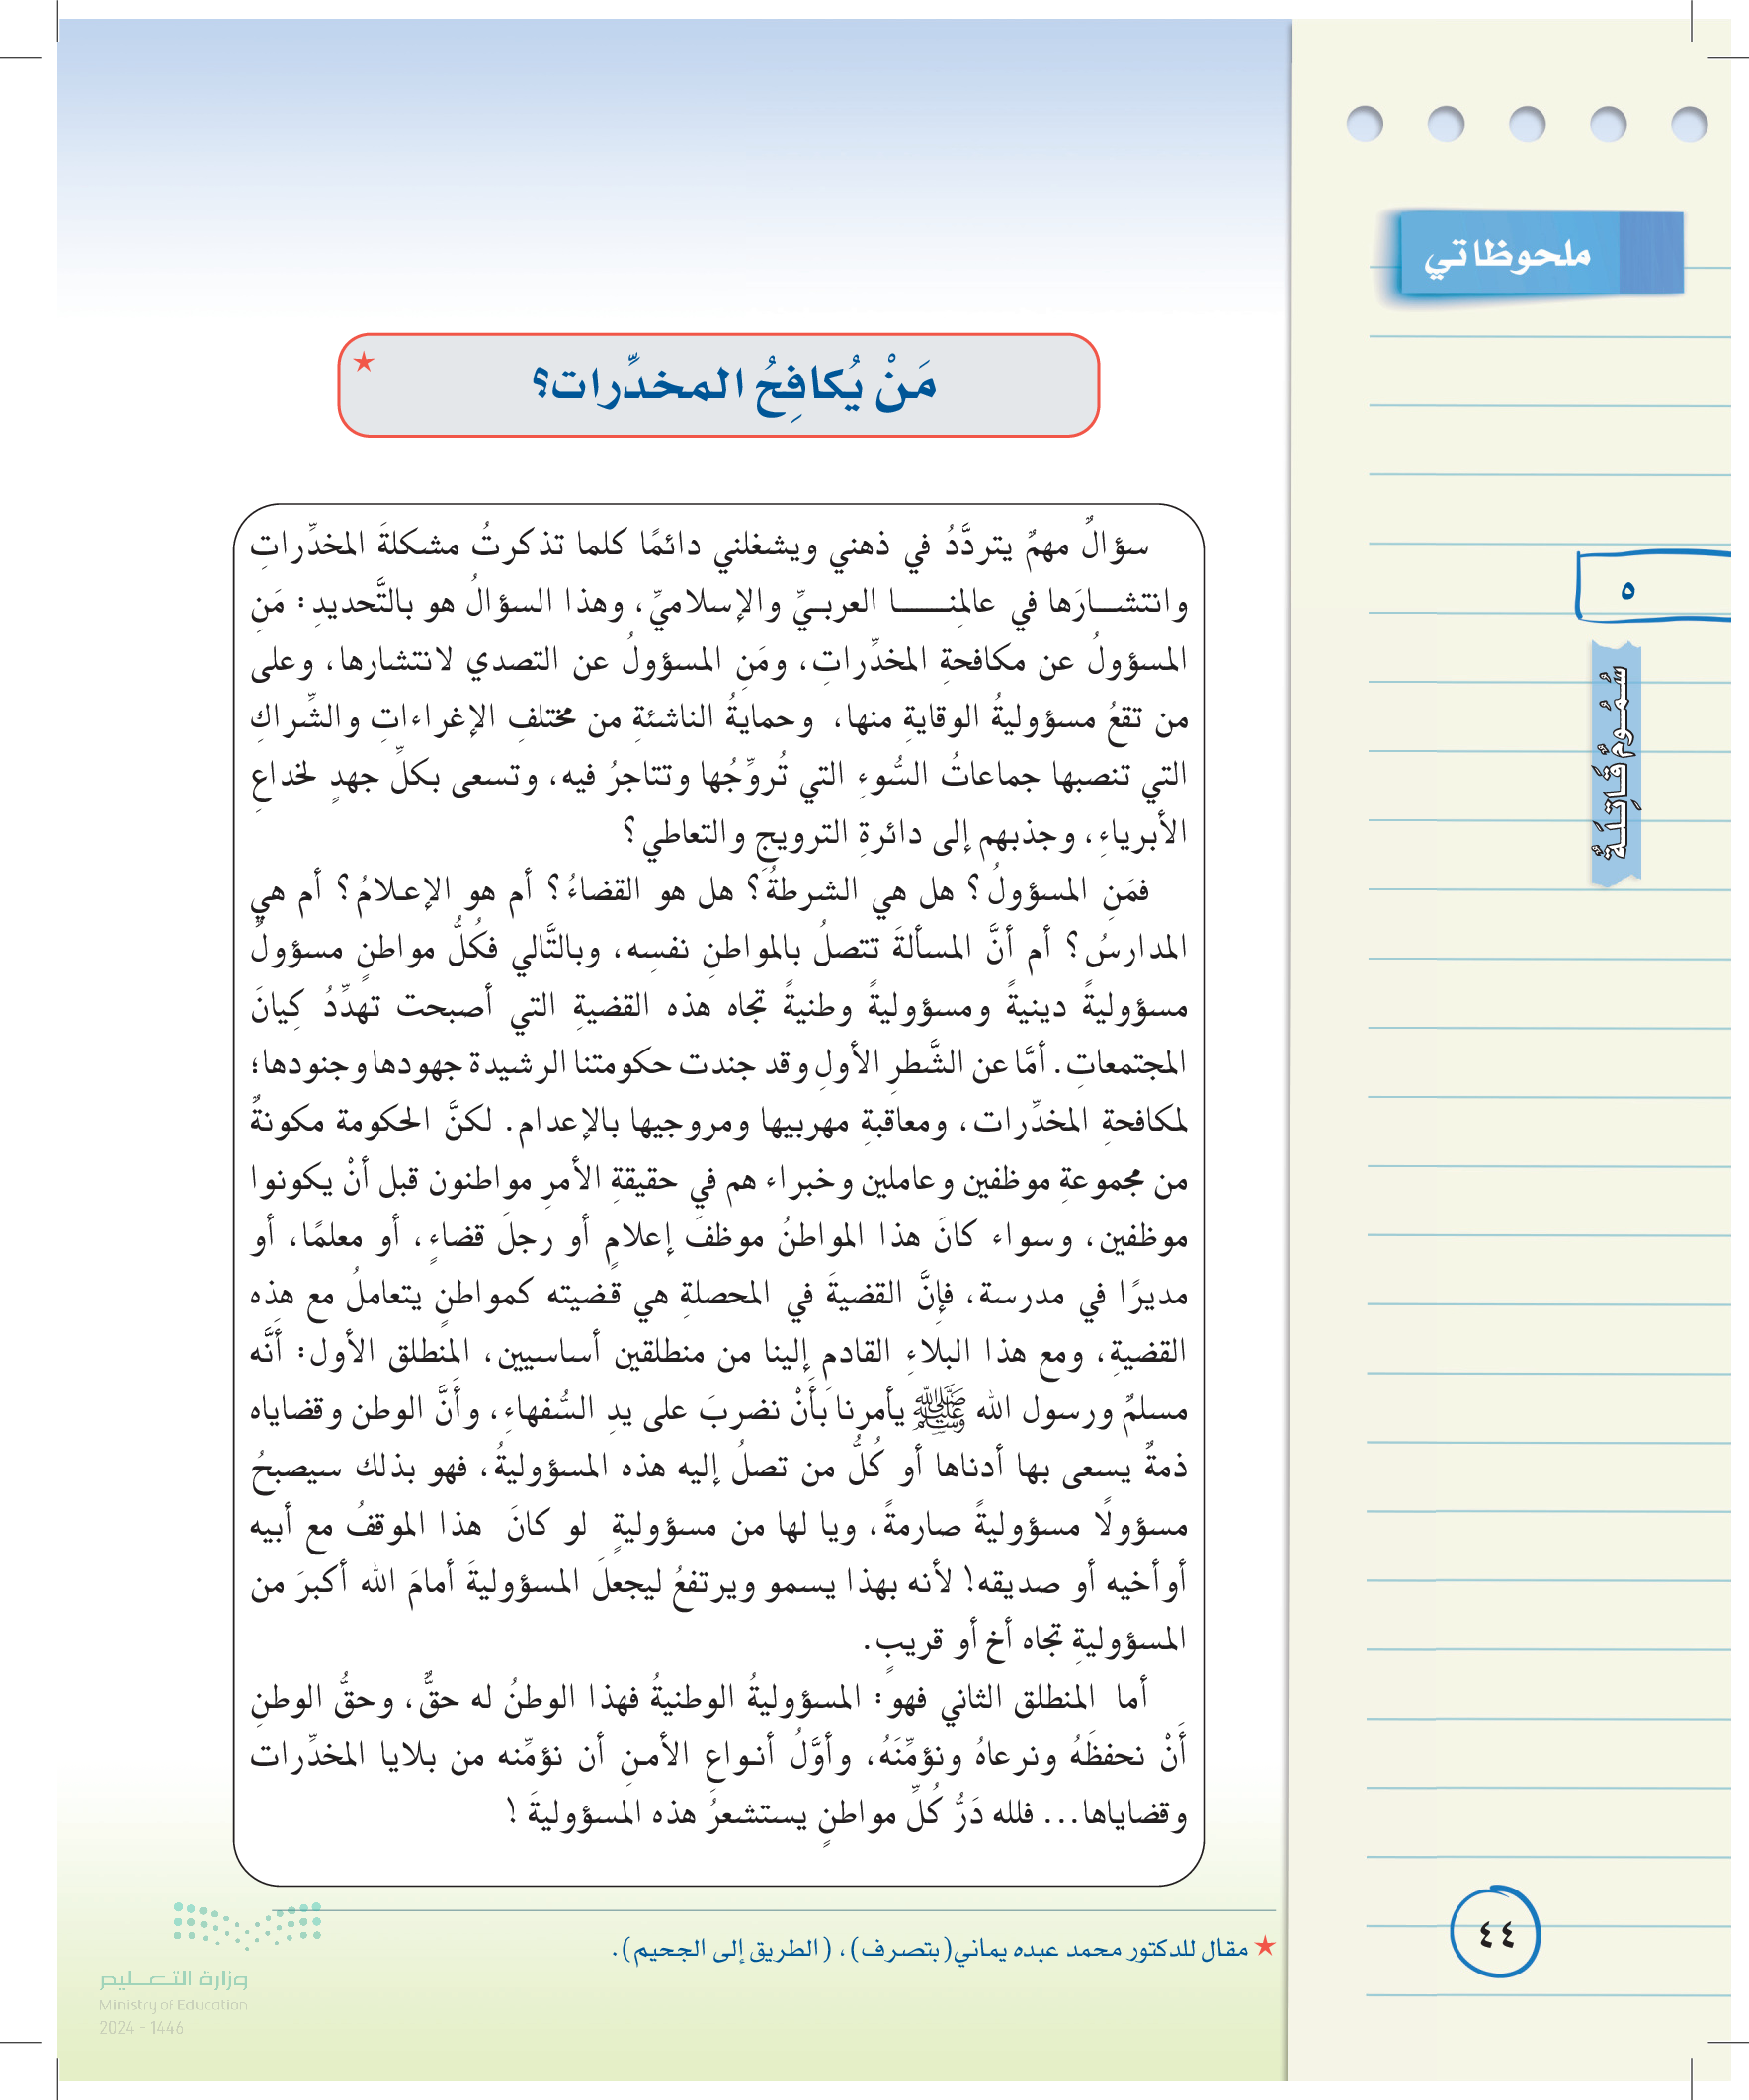 ملحوظاتي
٥
سُمُومٌ قَاتِلَةٌ
مَنْ يُكافِحُ المخدِّرات؟
سؤالٌ مهمٌ يتردَّدُ في ذهني ويشغلني دائمًا كلما تذكرتُ مشكلةَ المخدِّراتِ
وانتشـارَها في عالمِنـا العربيِّ والإسلاميِّ، وهذا السؤالُ هو بالتَّحديدِ: مَنِ
المسؤولُ عن مكافحةِ المخدِّراتِ، ومَنِ المسؤولُ عن التصدي لانتشارها، وعلى
من تقعُ مسؤوليةُ الوقايةِ منها، وحمايةُ الناشئةِ من مختلفِ الإغراءاتِ والشِّراكِ
التي تنصبها جماعاتُ السُّوءِ التي تُروِّجُها وتتاجرُ فيه، وتسعى بكلِّ جهدٍ لخداعِ
الأبرياءِ، وجذبهم إلى دائرةِ الترويجِ والتعاطي؟
فمَنِ المسؤولُ؟ هل هي الشرطةُ؟ هل هو القضاءُ؟ أم هو الإعلامُ؟ أم هي
المدارسُ؟ أم أنَّ المسألةَ تتصلُ بالمواطنِ نفسِه، وبالتَّالي فكُلُّ مواطنٍ مسؤولٌ
مسؤوليةً دينيةً ومسؤوليةً وطنيةً تجاه هذه القضيةِ التي أصبحت تهدِّدُ كِيانَ
المجتمعاتِ. أمَّا عن الشَّطرِ الأولِ وقد جندت حكومتنا الرشيدة جهودها وجنودها؛
لمكافحةِ المخدِّرات، ومعاقبةِ مهربيها ومروجيها بالإعدام. لكنَّ الحكومة مكونةٌ
من مجموعةِ موظفين وعاملين وخبراء هم في حقيقةِ الأمرِ مواطنون قبل أنْ يكونوا
موظفين، وسواء كانَ هذا المواطنُ موظفَ إعلامٍ أو رجلَ قضاءٍ، أو معلمًا، أو
مديرًا في مدرسة، فإنَّ القضيةَ في المحصلةِ هي قضيته كمواطنٍ يتعاملُ مع هذِه
القضيةِ، ومع هذا البلاءِ القادمِ إلينا من منطلقين أساسيين، المنطلق الأول: أنَّه
مسلمٌ ورسول الله ﷺ يأمرنا بأَنْ نضربَ على يدِ السُّفهاءِ، وأنَّ الوطن وقضاياه
ذمةٌ يسعى بها أدناها أو كُلُّ من تصلُ إليه هذه المسؤوليةُ، فهو بذلك سيصبحُ
مسؤولًا مسؤوليةً صارمةً، ويا لها من مسؤوليةٍ لو كانَ هذا الموقفُ مع أبيه
أوأخيه أو صديقه! لأنه بهذا يسمو ويرتفعُ ليجعلَ المسؤوليةَ أمامَ الله أكبرَ من
المسؤوليةِ تجاه أخ أو قريبٍ.
أما المنطلق الثاني فهو: المسؤوليةُ الوطنيةُ فهذا الوطنُ له حقٌّ، وحقُّ الوطنِ
أَنْ نحفظَهُ ونرعاهُ ونؤمِّنَهُ، وأوَّلُ أنواعِ الأمنِ أن نؤمِّنه من بلايا المخدِّرات
وقضاياها... فلله دَرُّ كُلِّ مواطنٍ يستشعرُ هذه المسؤوليةَ!
★ مقال للدكتور محمد عبده يماني(بتصرف)، (الطريق إلى الجحيم).
٤٤
وزارة التعليم
Ministry of Education
2024 - 1446